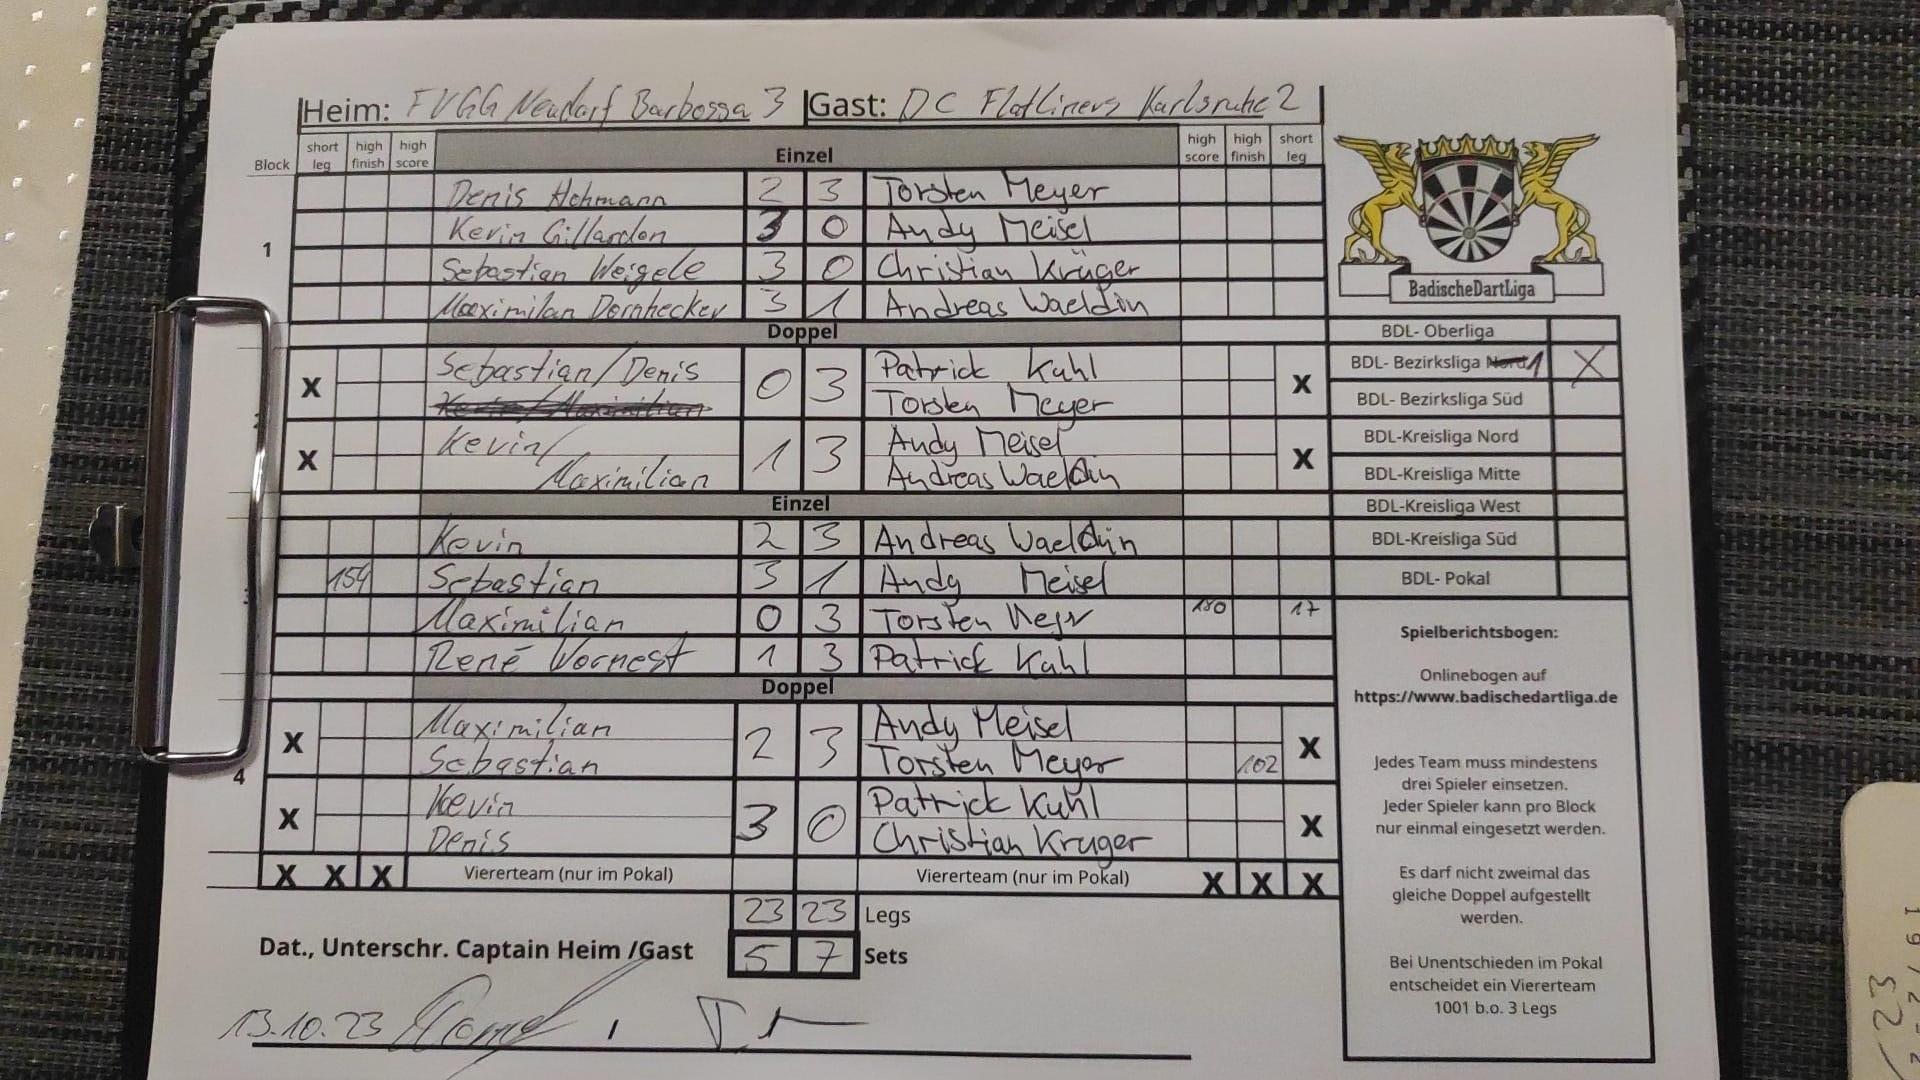 Heim: FVGG Neudorf Barbossa 3 Gast: DC Flatliners Karlsruhe 2
Block short leg high finish high score Einzel high score high finish short leg
Denis Hohmann 2 3 Torsten Meyer
1 Kevin Gillardon 3 0 Andy Meisel
Sebastian Weigele 3 0 Christian Krüger
Maximilan Dornhecker 3 1 Andreas Waeldin
Doppel
X Sebastian/Denis 0 3 Patrick Kuhl X
Kevin/Maximilian Torsten Meyer
X Kevin/ 1 3 Andy Meisel X
Maximilian Andreas Waeldin
Einzel
Kevin 2 3 Andreas Waeldin
154 Sebastian 3 1 Andy Meisel
Maximilian 0 3 Torsten 180 17
René Wornest 1 3 Patrick Kuhl
Doppel
X Maximilian 2 3 Andy Meisel X
4 Sebastian Torsten Meyer 102
X Kevin 3 0 Patrick Kuhl X
Denis Christian Kruger
X X X Viererteam (nur im Pokal) Viererteam (nur im Pokal) X X X
23 23 Legs
Dat., Unterschr. Captain Heim /Gast 5 7 Sets
13.10.23
BadischeDartLiga
BDL- Oberliga
BDL- Bezirksliga Nord 1 X
BDL- Bezirksliga Süd
BDL-Kreisliga Nord
BDL-Kreisliga Mitte
BDL-Kreisliga West
BDL-Kreisliga Süd
BDL- Pokal
Spielberichtsbogen:
Onlinebogen auf
https://www.badischedartliga.de
Jedes Team muss mindestens
drei Spieler einsetzen.
Jeder Spieler kann pro Block
nur einmal eingesetzt werden.
Es darf nicht zweimal das
gleiche Doppel aufgestellt
werden.
Bei Unentschieden im Pokal
entscheidet ein Viererteam
1001 b.o. 3 Legs